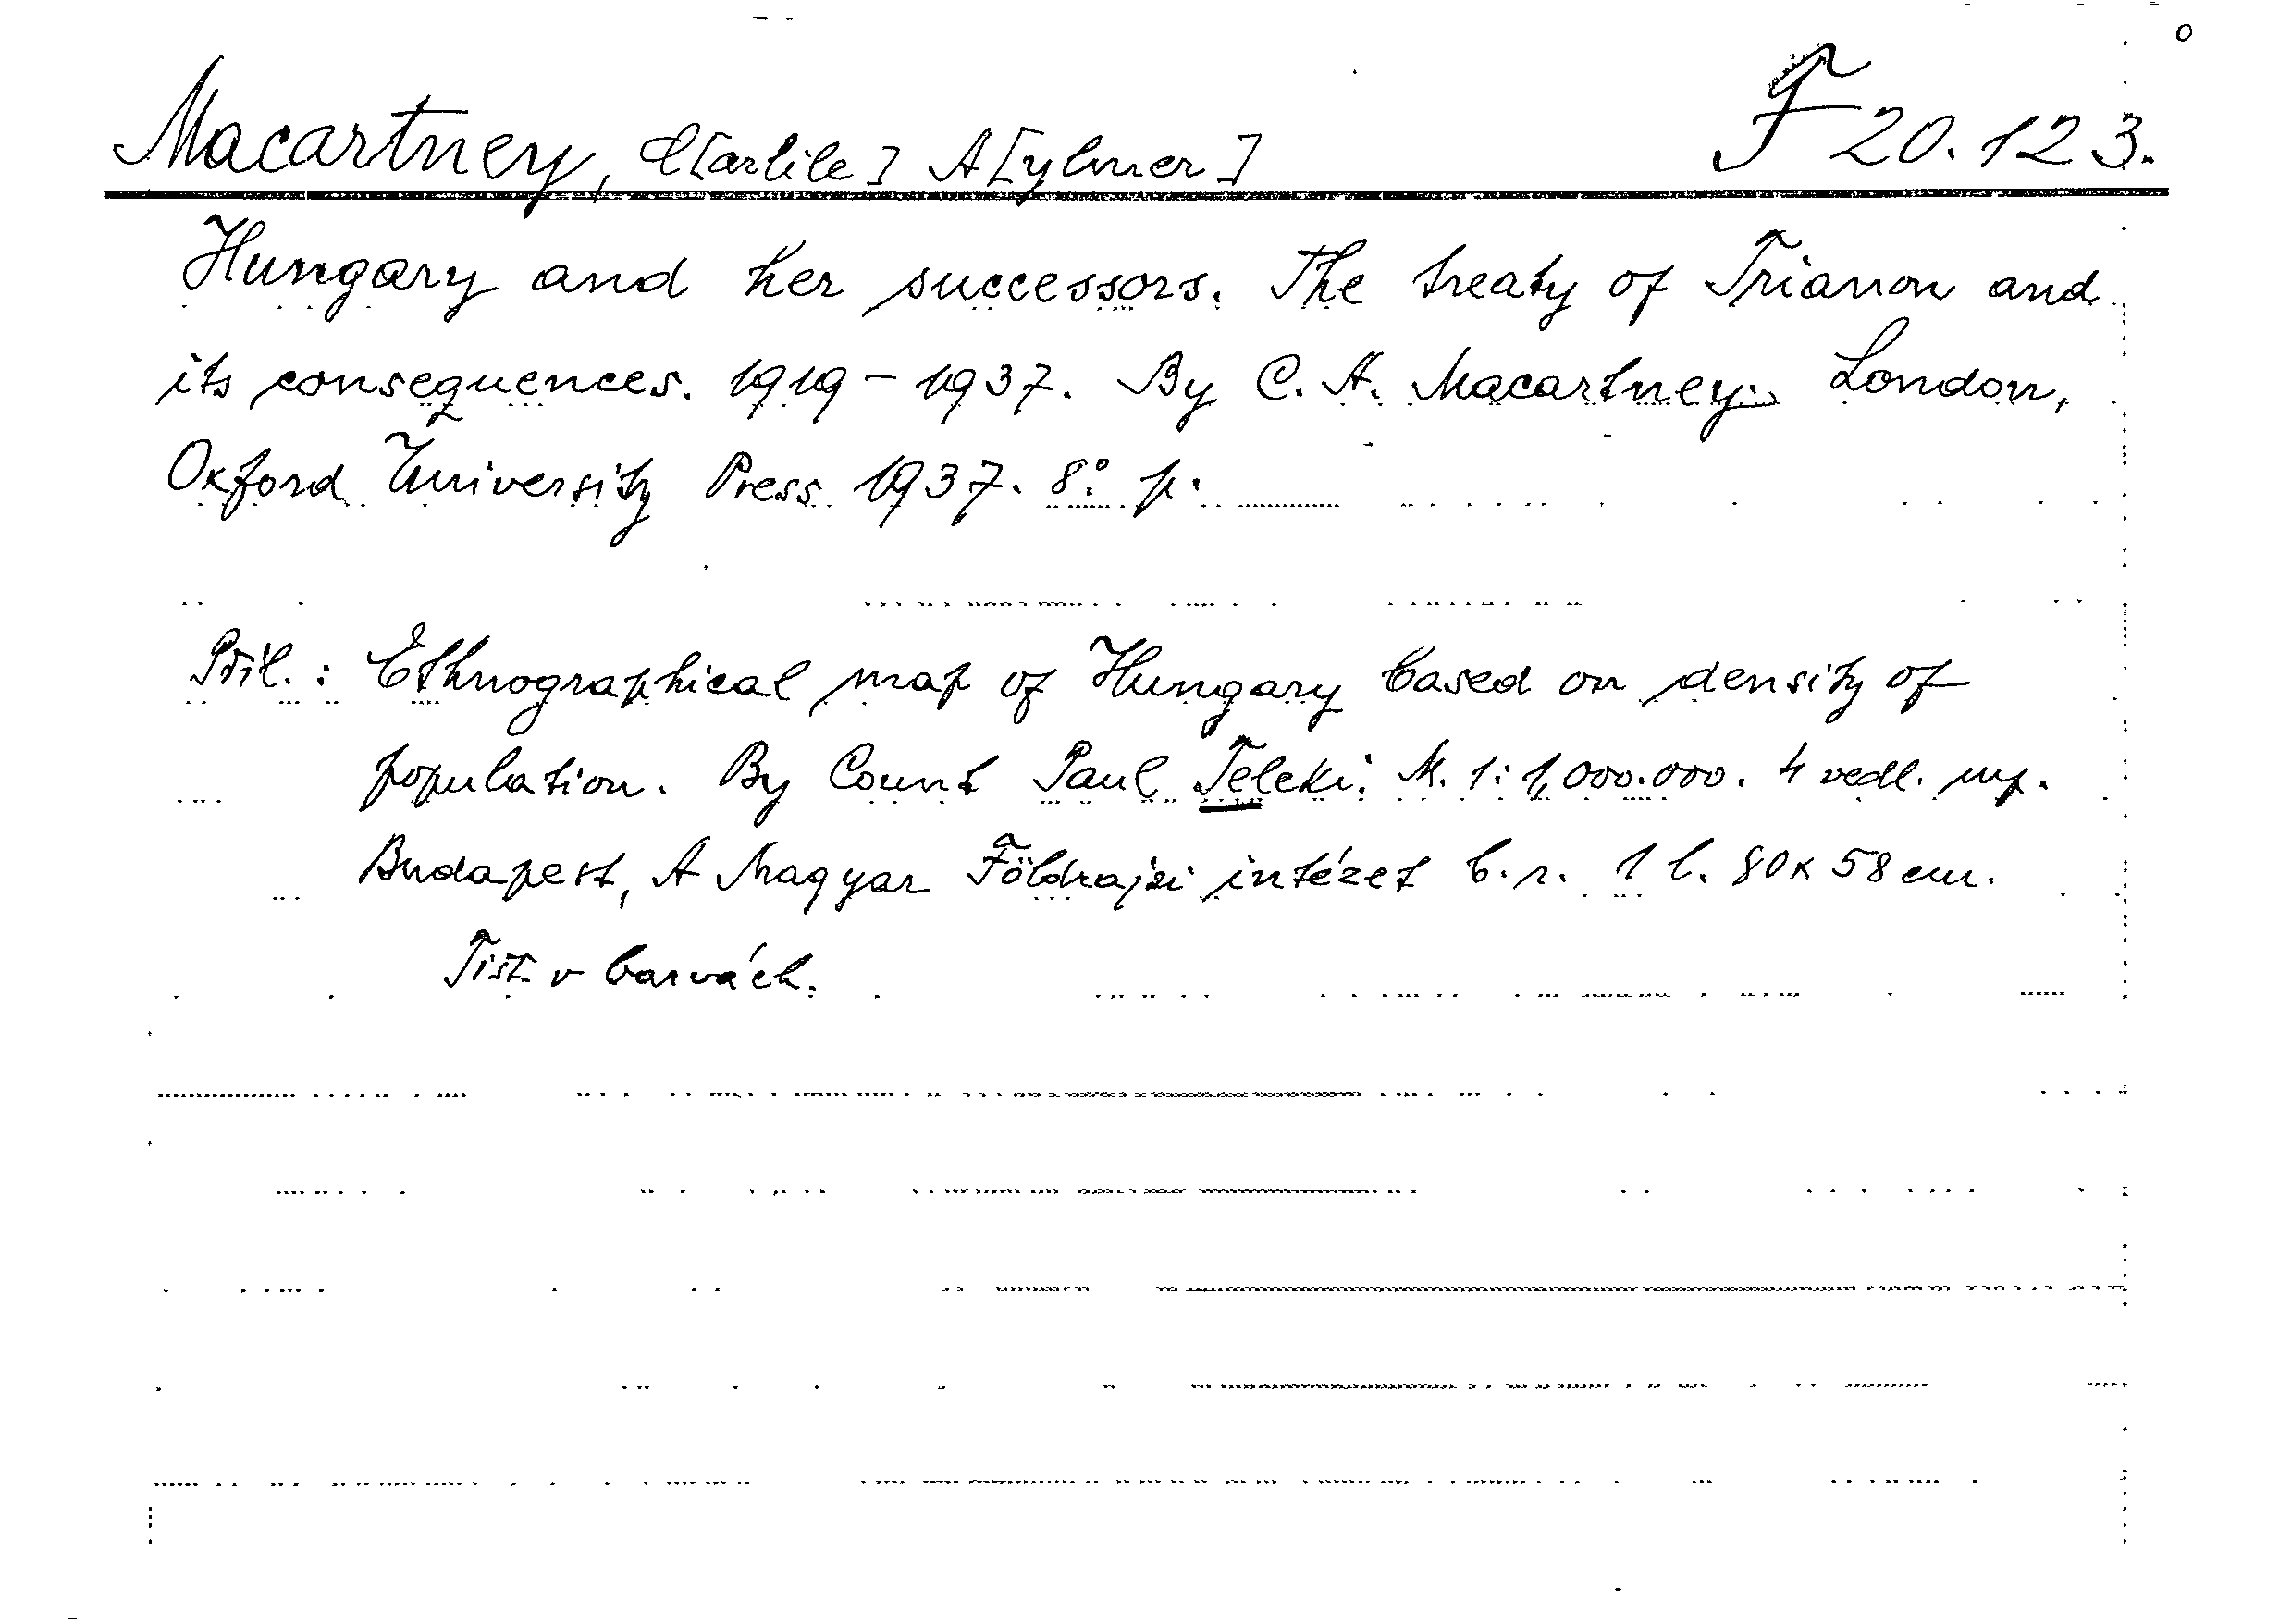 Macartney, C[arlile] A[ylmer] F 20.123.
Hungary and her successors. The treaty of Trianon and
its consequences. 1919-1937. By C. A. Macartney. London,
Oxford University Press 1937. 8° p.
Příl.: Ethnographical map of Hungary based on density of
population. By Count Paul Teleki. M. 1:1,000.000. 4 vedl. mp.
Budapest, A Magyar Földrajzi intézet b.r. 1 l. 80x58 cm.
Tišt. v barvách.